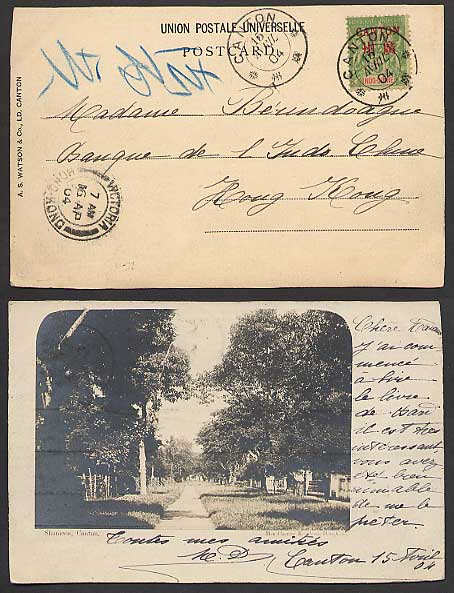 UNION POSTALE UNIVERSELLE
POSTCARD.
CANTON
15
AVRIL
04
廣州
CANTON
INDO-CHINE
CANTON
AVRIL
04
Madame
Banque de l'Indo Chine
Hong Kong
A. S. WATSON & Co., LD. CANTON
VICTORIA
7 AM
16 AP
04
HONG KONG
Chère
J'ai com-
mencé
à lire
le livre
de
il est très
intéressant
vous avez
été bien
aimable
de me le
prêter.
Shameen, Canton.
Toutes mes amitiés
Canton 15 Avril
04